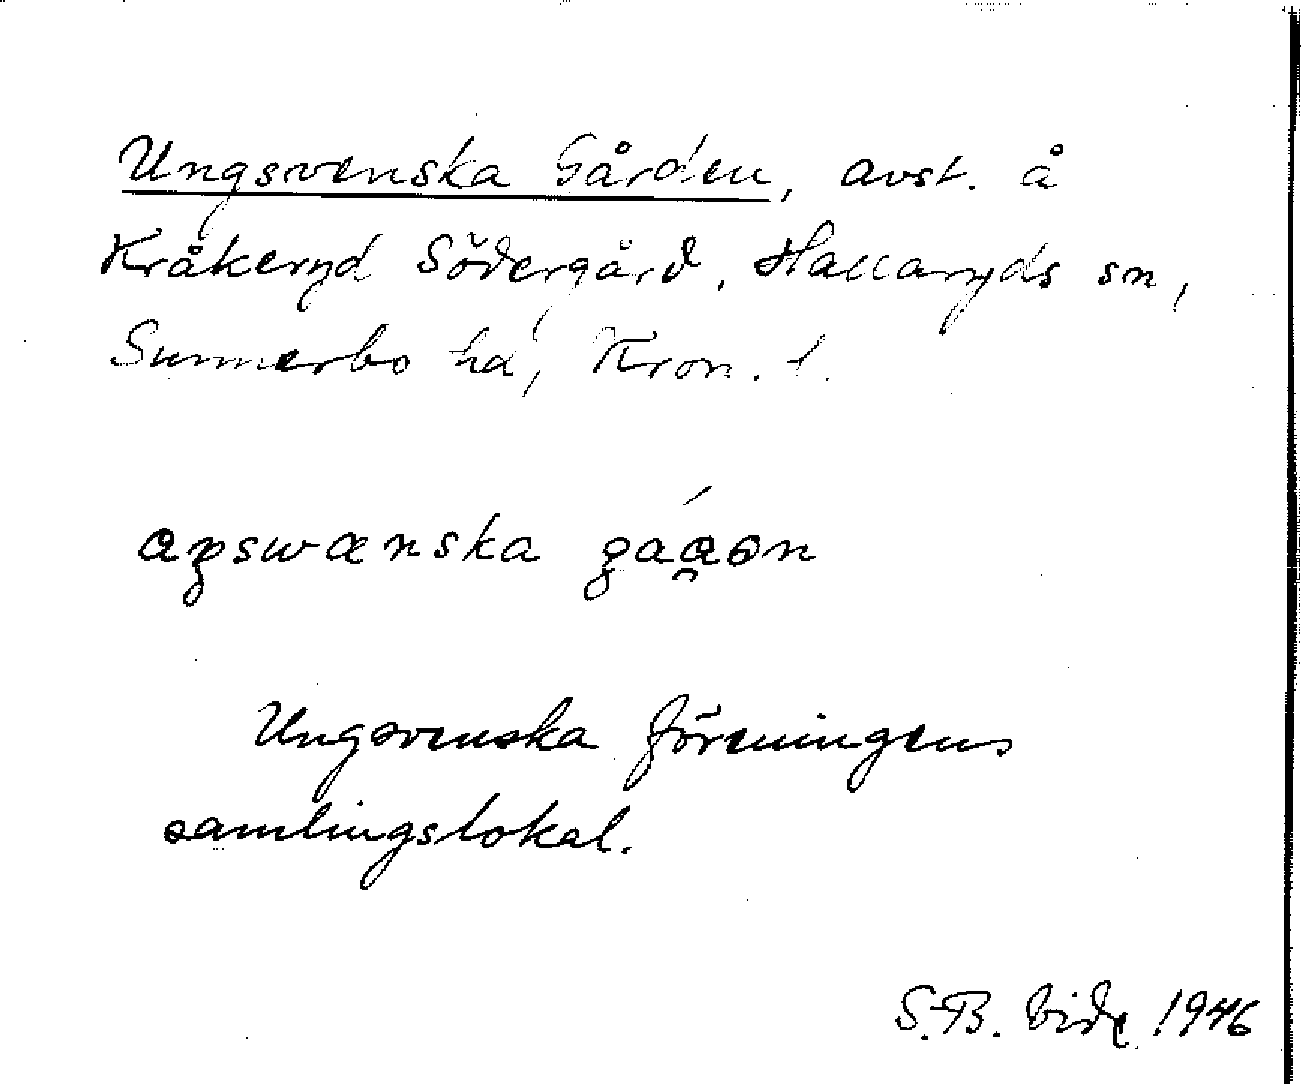 Ungsvenska Gården, avst. å
Kråkeryd Södergård, Hallaryds sn,
Sunnerbo hd, Kron. l.
gåɑən
Ungsvenska föreningens
samlingslokal.
S.B. Vide 1946